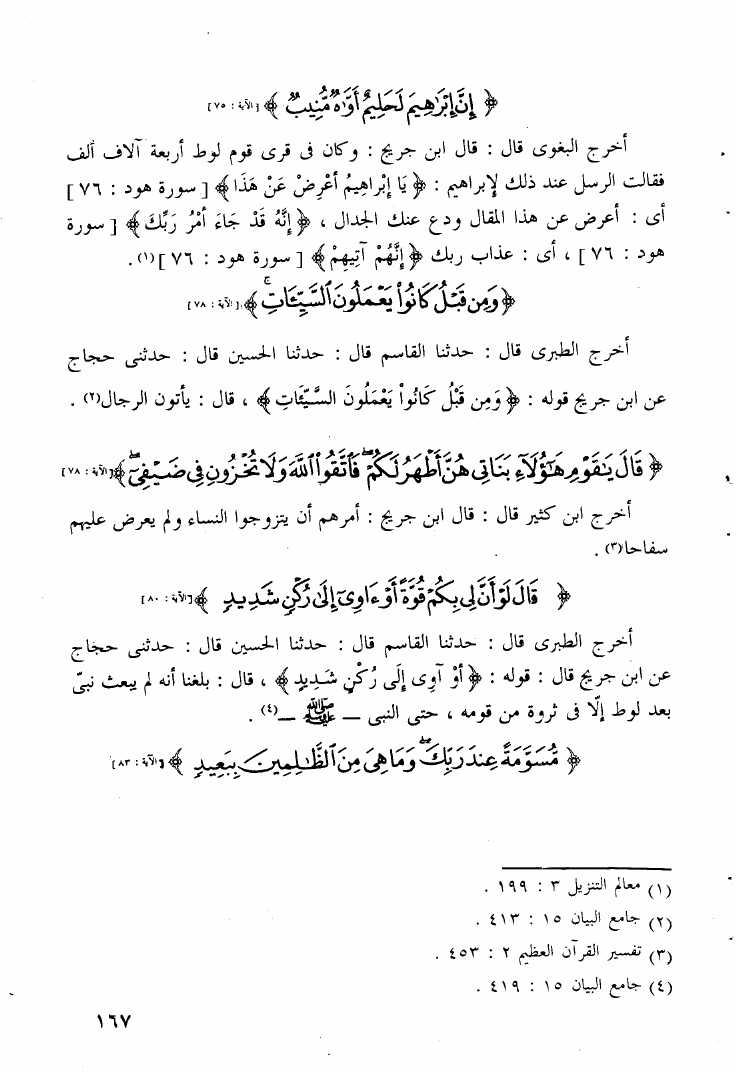 ﴿ إِنَّ إِبْرَٰهِيمَ لَحَلِيمٌ أَوَّٰهٌ مُّنِيبٌ ﴾ [الآية : ٧٥]
أخرج البغوى قال : قال ابن جريج : وكان فى قرى قوم لوط أربعة آلاف ألف
فقالت الرسل عند ذلك لإبراهيم : ﴿ يَا إِبْراهِيمُ أَعْرِضْ عَنْ هَذَا ﴾ [ سورة هود : ٧٦ ]
أى : أعرض عن هذا المقال ودع عنك الجدال ، ﴿ إِنَّهُ قَدْ جَاءَ أَمْرُ رَبِّكَ ﴾ [ سورة
هود : ٧٦ ] ، أى : عذاب ربك ﴿ إِنَّهُمْ آتِيهِمْ ﴾ [ سورة هود : ٧٦ ](١) .
﴿ وَمِن قَبْلُ كَانُواْ يَعْمَلُونَ ٱلسَّيِّـَٔاتِ ۚ ﴾ [الآية : ٧٨]
أخرج الطبرى قال : حدثنا القاسم قال : حدثنا الحسين قال : حدثنى حجاج
عن ابن جريج قوله : ﴿ وَمِن قَبْلُ كَانُواْ يَعْمَلُونَ السَّيِّئَاتِ ﴾ ، قال : يأتون الرجال(٢) .
﴿ قَالَ يَٰقَوْمِ هَٰٓؤُلَآءِ بَنَاتِى هُنَّ أَطْهَرُ لَكُمْ ۖ فَٱتَّقُواْ ٱللَّهَ وَلَا تُخْزُونِ فِى ضَيْفِىٓ ۖ ﴾ [الآية : ٧٨]
أخرج ابن كثير قال : قال ابن جريج : أمرهم أن يتزوجوا النساء ولم يعرض عليهم
سفاحا(٣) .
﴿ قَالَ لَوْ أَنَّ لِى بِكُمْ قُوَّةً أَوْ ءَاوِىٓ إِلَىٰ رُكْنٍ شَدِيدٍ ﴾ [الآية : ٨٠]
أخرج الطبرى قال : حدثنا القاسم قال : حدثنا الحسين قال : حدثنى حجاج
عن ابن جريج قال : قوله : ﴿ أَوْ آوِى إِلَى رُكْنٍ شَدِيدٍ ﴾ ، قال : بلغنا أنه لم يبعث نبىّ
بعد لوط إلّا فى ثروة من قومه ، حتى النبى ــ ﷺ ــ(٤) .
﴿ مُّسَوَّمَةً عِندَ رَبِّكَ ۖ وَمَا هِىَ مِنَ ٱلظَّٰلِمِينَ بِبَعِيدٍ ﴾ [الآية : ٨٣]
(١) معالم التنزيل ٣ : ١٩٩ .
(٢) جامع البيان ١٥ : ٤١٣ .
(٣) تفسير القرآن العظيم ٢ : ٤٥٣ .
(٤) جامع البيان ١٥ : ٤١٩ .
١٦٧